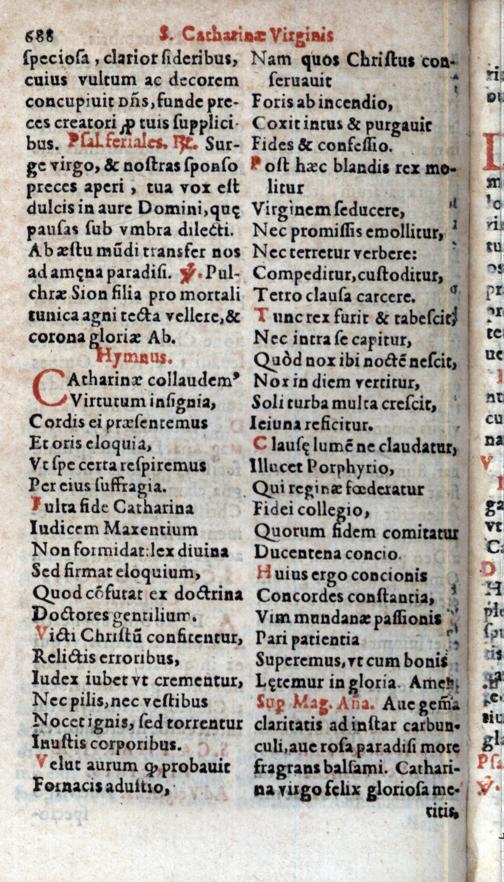 688 S. Catharinæ Virginis
ſpecioſa, clarior ſideribus,
cuius vultum ac decorem
concupiuit dñs, funde pre-
ces creatori ꝓ tuis ſupplici-
bus. Pſal. feriales. ℟. Sur-
ge virgo, & noſtras ſponſo
preces aperi, tua vox eſt
dulcis in aure Domini, quę
pauſas ſub vmbra dilecti.
Ab æſtu mūdi transfer nos
ad amęna paradiſi. ℣. Pul-
chræ Sion filia pro mortali
tunica agni tecta vellere, &
corona gloriæ Ab.
Hymnus.
CAtharinæ collaudemꝰ
Virtutum inſignia,
Cordis ei præſentemus
Et oris eloquia,
Vt ſpe certa reſpiremus
Per eius ſuffragia.
Fulta fide Catharina
Iudicem Maxentium
Non formidat: lex diuina
Sed firmat eloquium,
Quod cōfutat ex doctrina
Doctores gentilium.
Victi Chriſtū confitentur,
Relictis erroribus,
Iudex iubet vt crementur,
Nec pilis, nec veſtibus
Nocet ignis, ſed torrentur
Inuſtis corporibus.
Velut aurum ꝙ probauit
Fornacis aduſtio,
Nam quos Chriſtus con-
ſeruauit
Foris ab incendio,
Coxit intus & purgauit
Fides & confeſſio.
Poſt hæc blandis rex mo-
litur
Virginem ſeducere,
Nec promiſſis emollitur,
Nec terretur verbere:
Compeditur, cuſtoditur,
Tetro clauſa carcere.
Tunc rex furit & tabeſcit,
Nec intra ſe capitur,
Quòd nox ibi noctē neſcit,
Nox in diem vertitur,
Soli turba multa creſcit,
Ieiuna reficitur.
Clauſę lumē ne claudatur,
Illucet Porphyrio,
Qui reginæ fœderatur
Fidei collegio,
Quorum fidem comitatur
Ducentena concio.
Huius ergo concionis
Concordes conſtantia,
Vim mundanæ paſſionis
Pari patientia
Superemus, vt cum bonis
Lętemur in gloria. Amen.
Sup Mag. Aña. Aue gem̃a
claritatis ad inſtar carbun-
culi, aue roſa paradiſi more
fragrans balſami. Cathari-
na virgo felix glorioſa me-
titis,